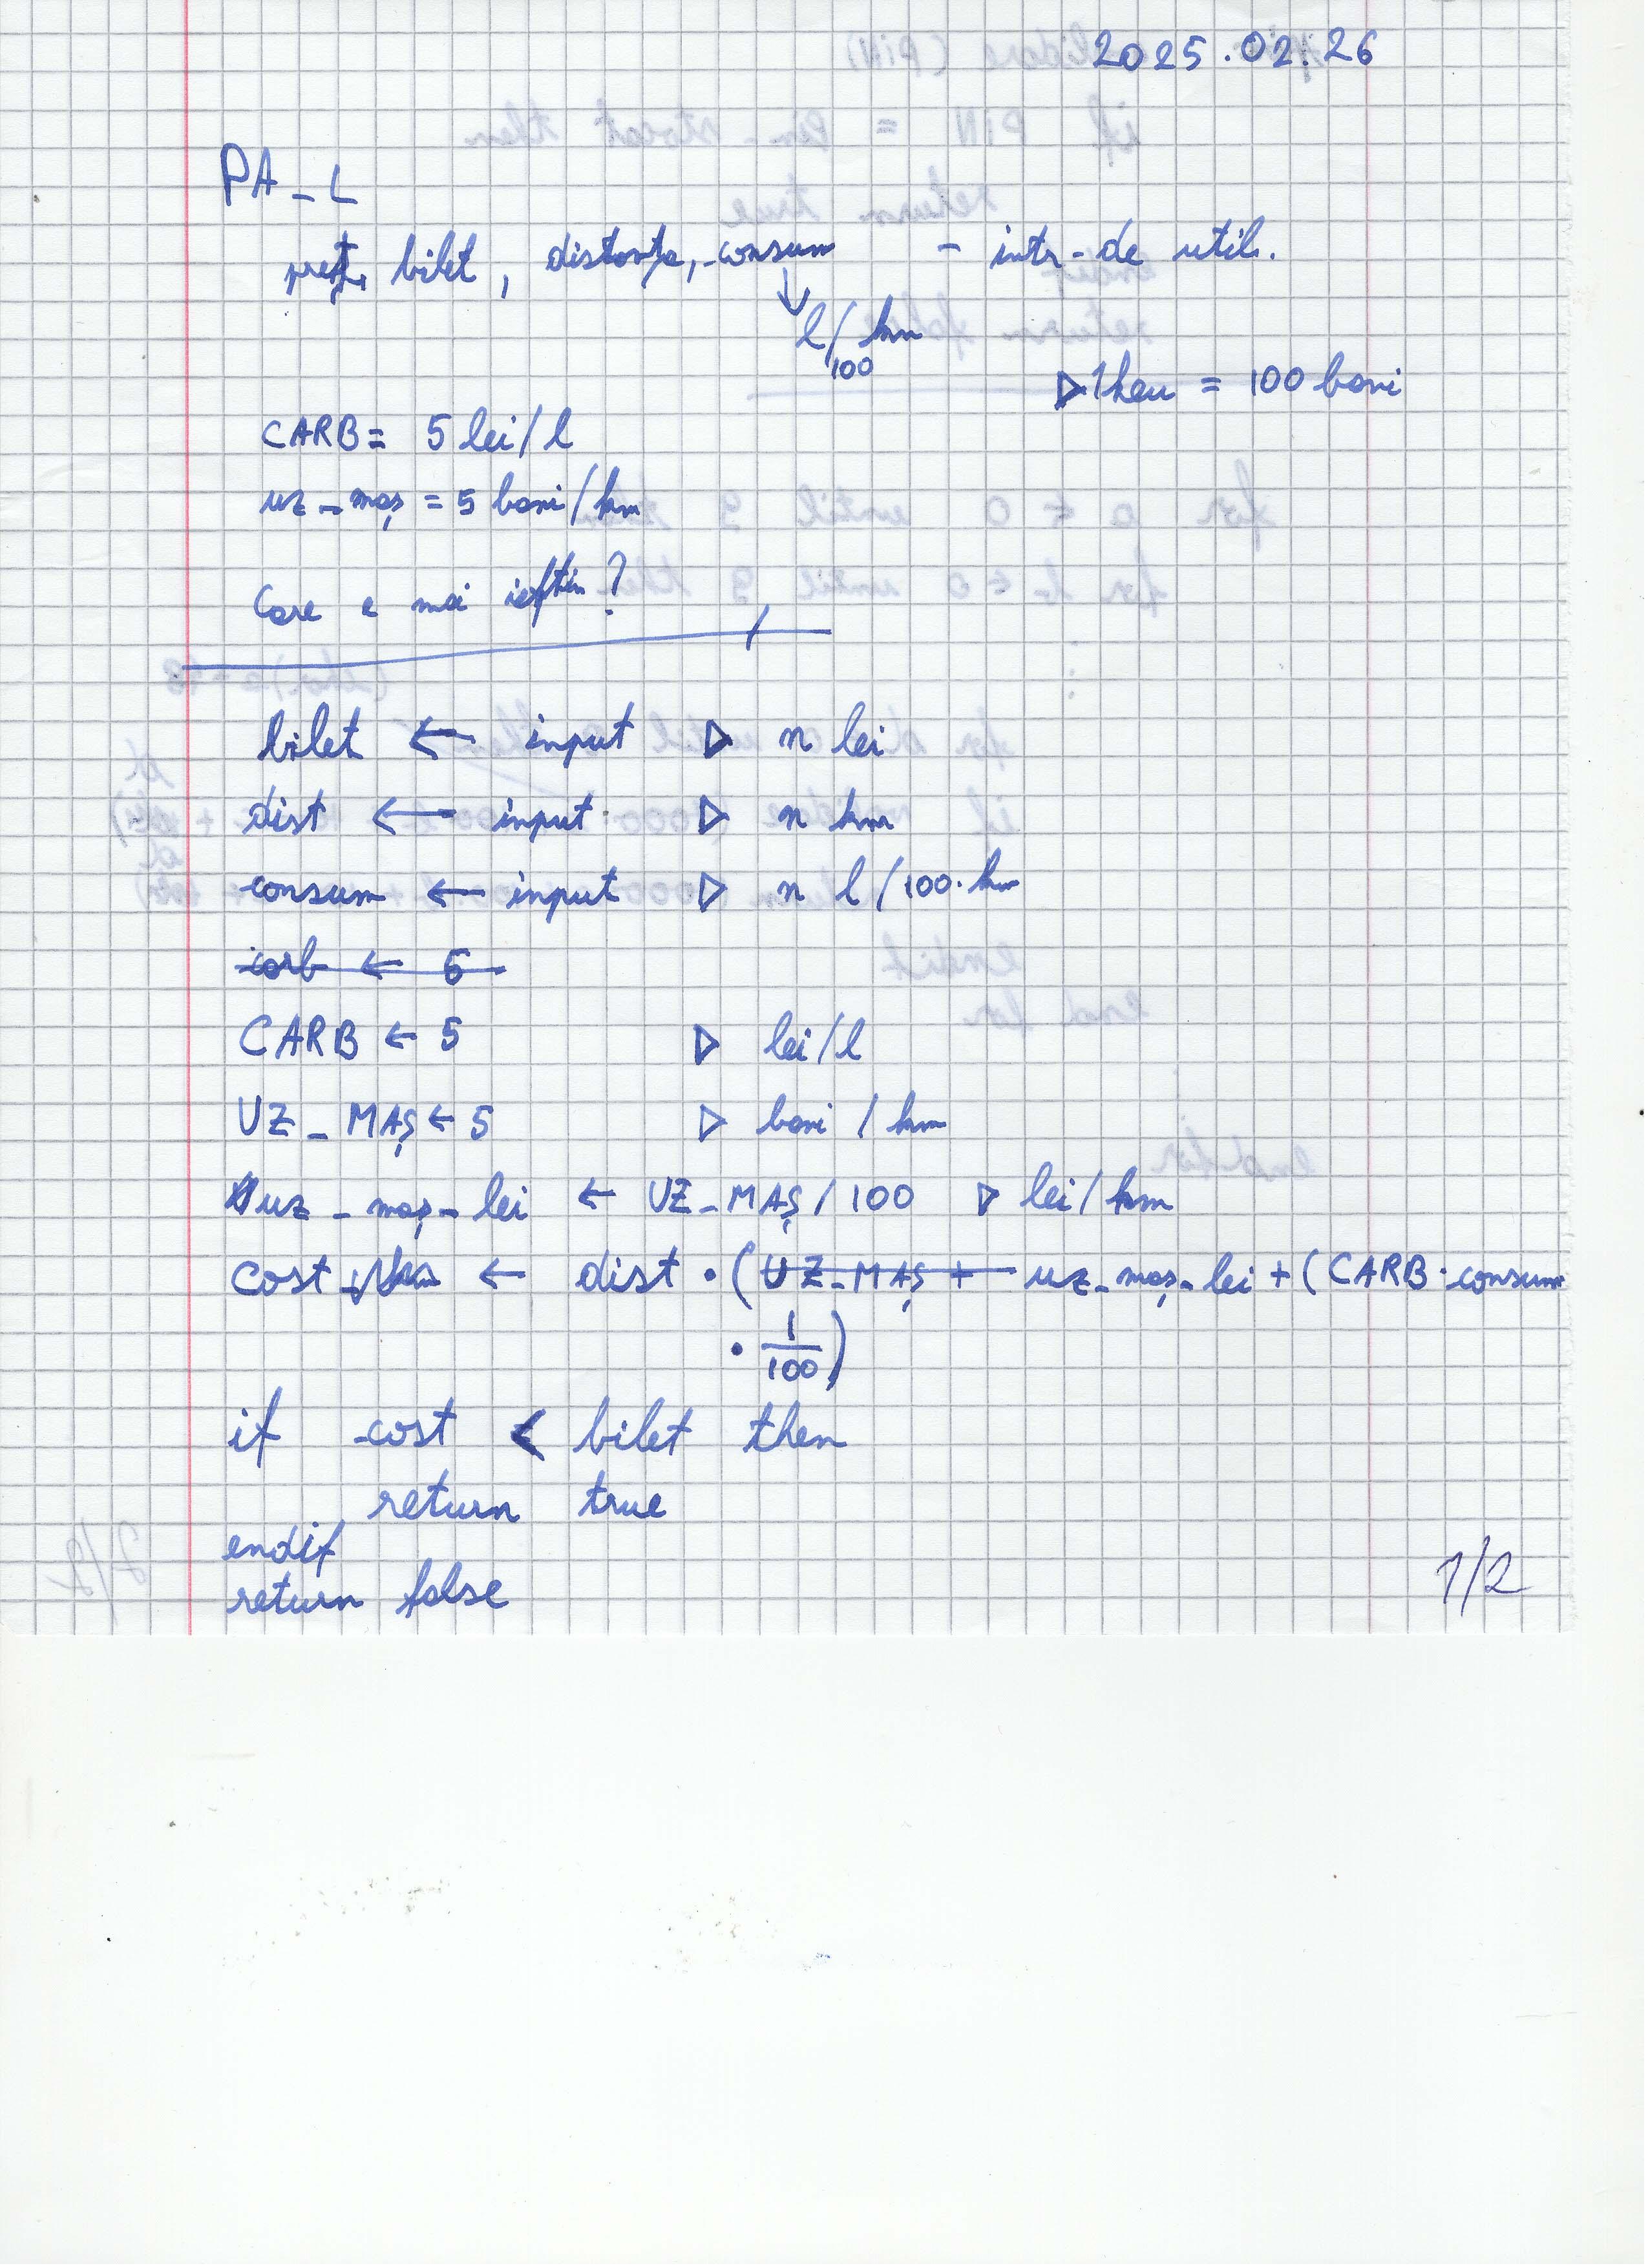 2025.02.26
PA_L
preț bilet, distanța, consum - intr-de util.
↓
l/100 km
▷ 1 leu = 100 bani
CARB = 5 lei/l
uz_maș = 5 bani/km
Care e mai ieftin?
bilet ← input ▷ n lei
dist ← input ▷ n km
consum ← input ▷ n l/100·km
carb ← 6
CARB ← 5 ▷ lei/l
UZ_MAȘ ← 5 ▷ bani/km
uz_maș_lei ← UZ_MAȘ/100 ▷ lei/km
cost ← dist · (UZ_MAȘ + uz_maș_lei + (CARB · consum
· 1/100)
if cost < bilet then
return true
endif
return false
1/2